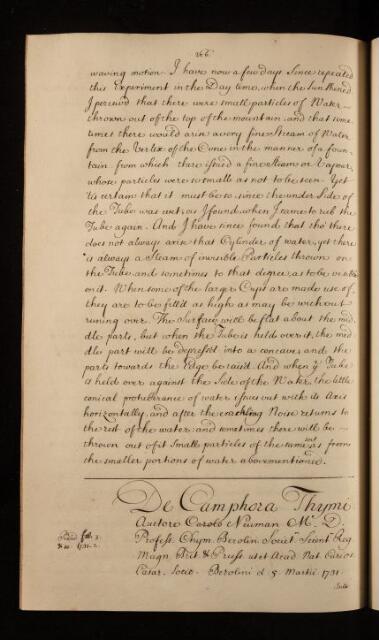 266
waving motion. I have now a few days Since repeated
this Experiment in the Day time, when the Sun Shined
I perceivd that there were small particles of Water
thrown out of the top of the mountain, and that some
times there would arise a very fine Stream of Water
from the Vertex of the Cone in the manner of a foun-
tain from which there issued a fine Steam or Vapour
whose particles were so small as not to be seen. Yet
tis certain that it must be so since the under Side of
the Tube was wet, as I found when I came to rub the
Tube again. And I have since found that tho' there
does not always arise that Cylinder of water, yet there
is always a Steam of invisible Particles thrown on
the Tube and sometimes to that degree, as to be visible
on it. When some of the larger Cups are made use of,
they are to be fill'd as high as may be without
runing over. The Surface will be flat about the mid
dle parts, but when the Tube is held over it, the mid
dle part will be depressd into a concave, and the
parts towards the Edge be raisd. And when ye Tube
is held over against the Side of the Water, the little
conical protuberance of water issues out with its Axis
horizontally, and after the crackling Noise returns to
the rest of the water, and sometimes there will be
thrown out of it Small particles of the same, as from
the smaller portions of water abovementioned.
De Camphora Thymi
Auctore Carolo Neuman M. D.
Profess. Chym. Berolin. Societ. Scient. Reg
Magn. Brit. & Pruss. ut et Acad. Nat. Curios.
Cæsar. Socio. Berolini d. 5. Martii 1731.